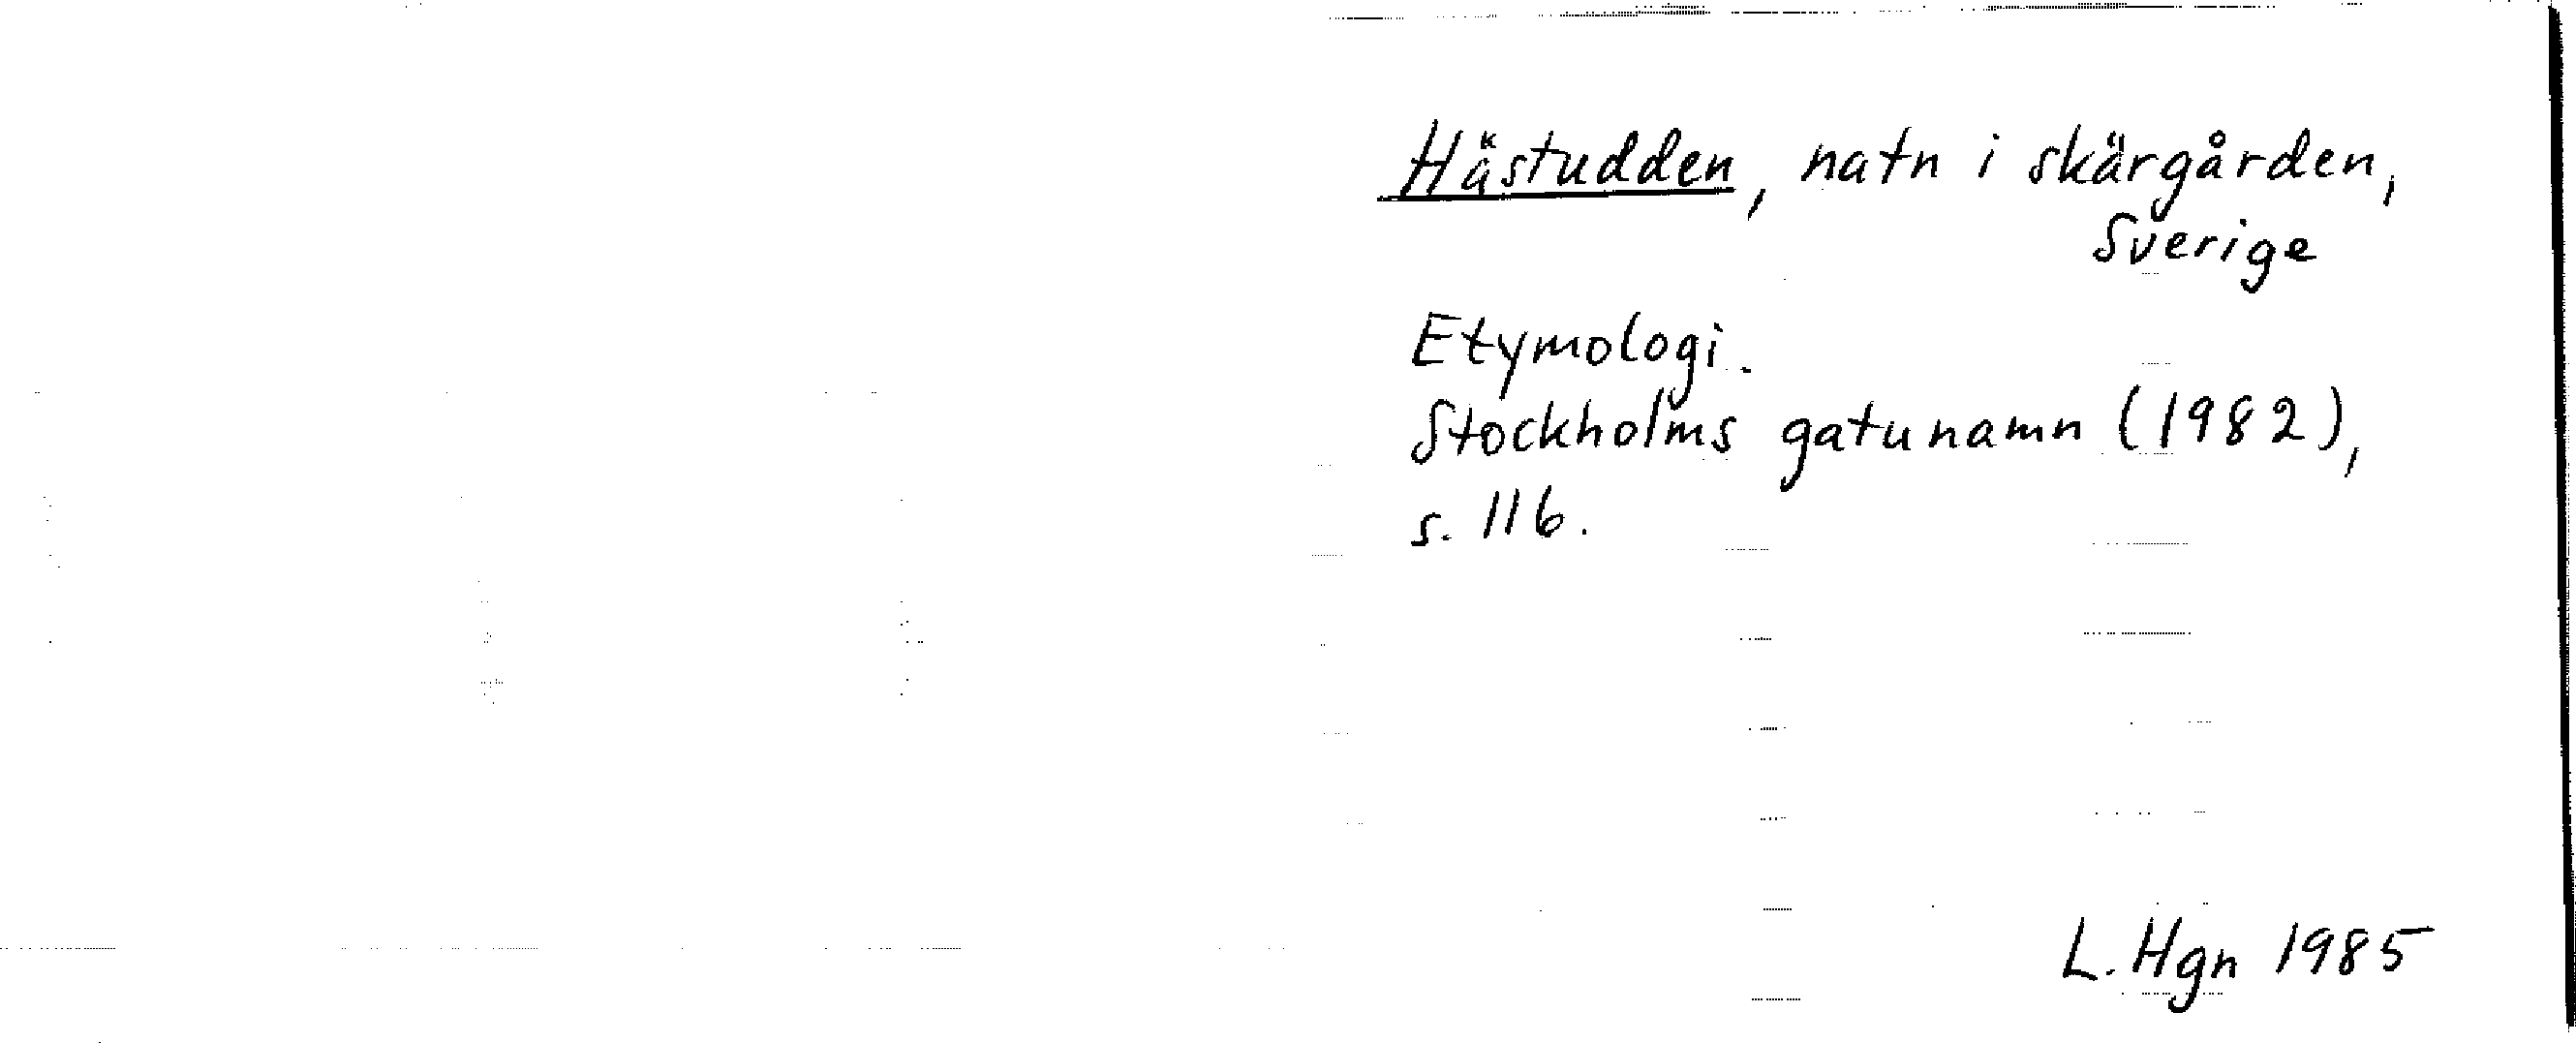 Hästudden, natn i skärgården,
Sverige
Etymologi.
Stockholms gatunamn (1982),
s. 116.
L. Hgn 1985